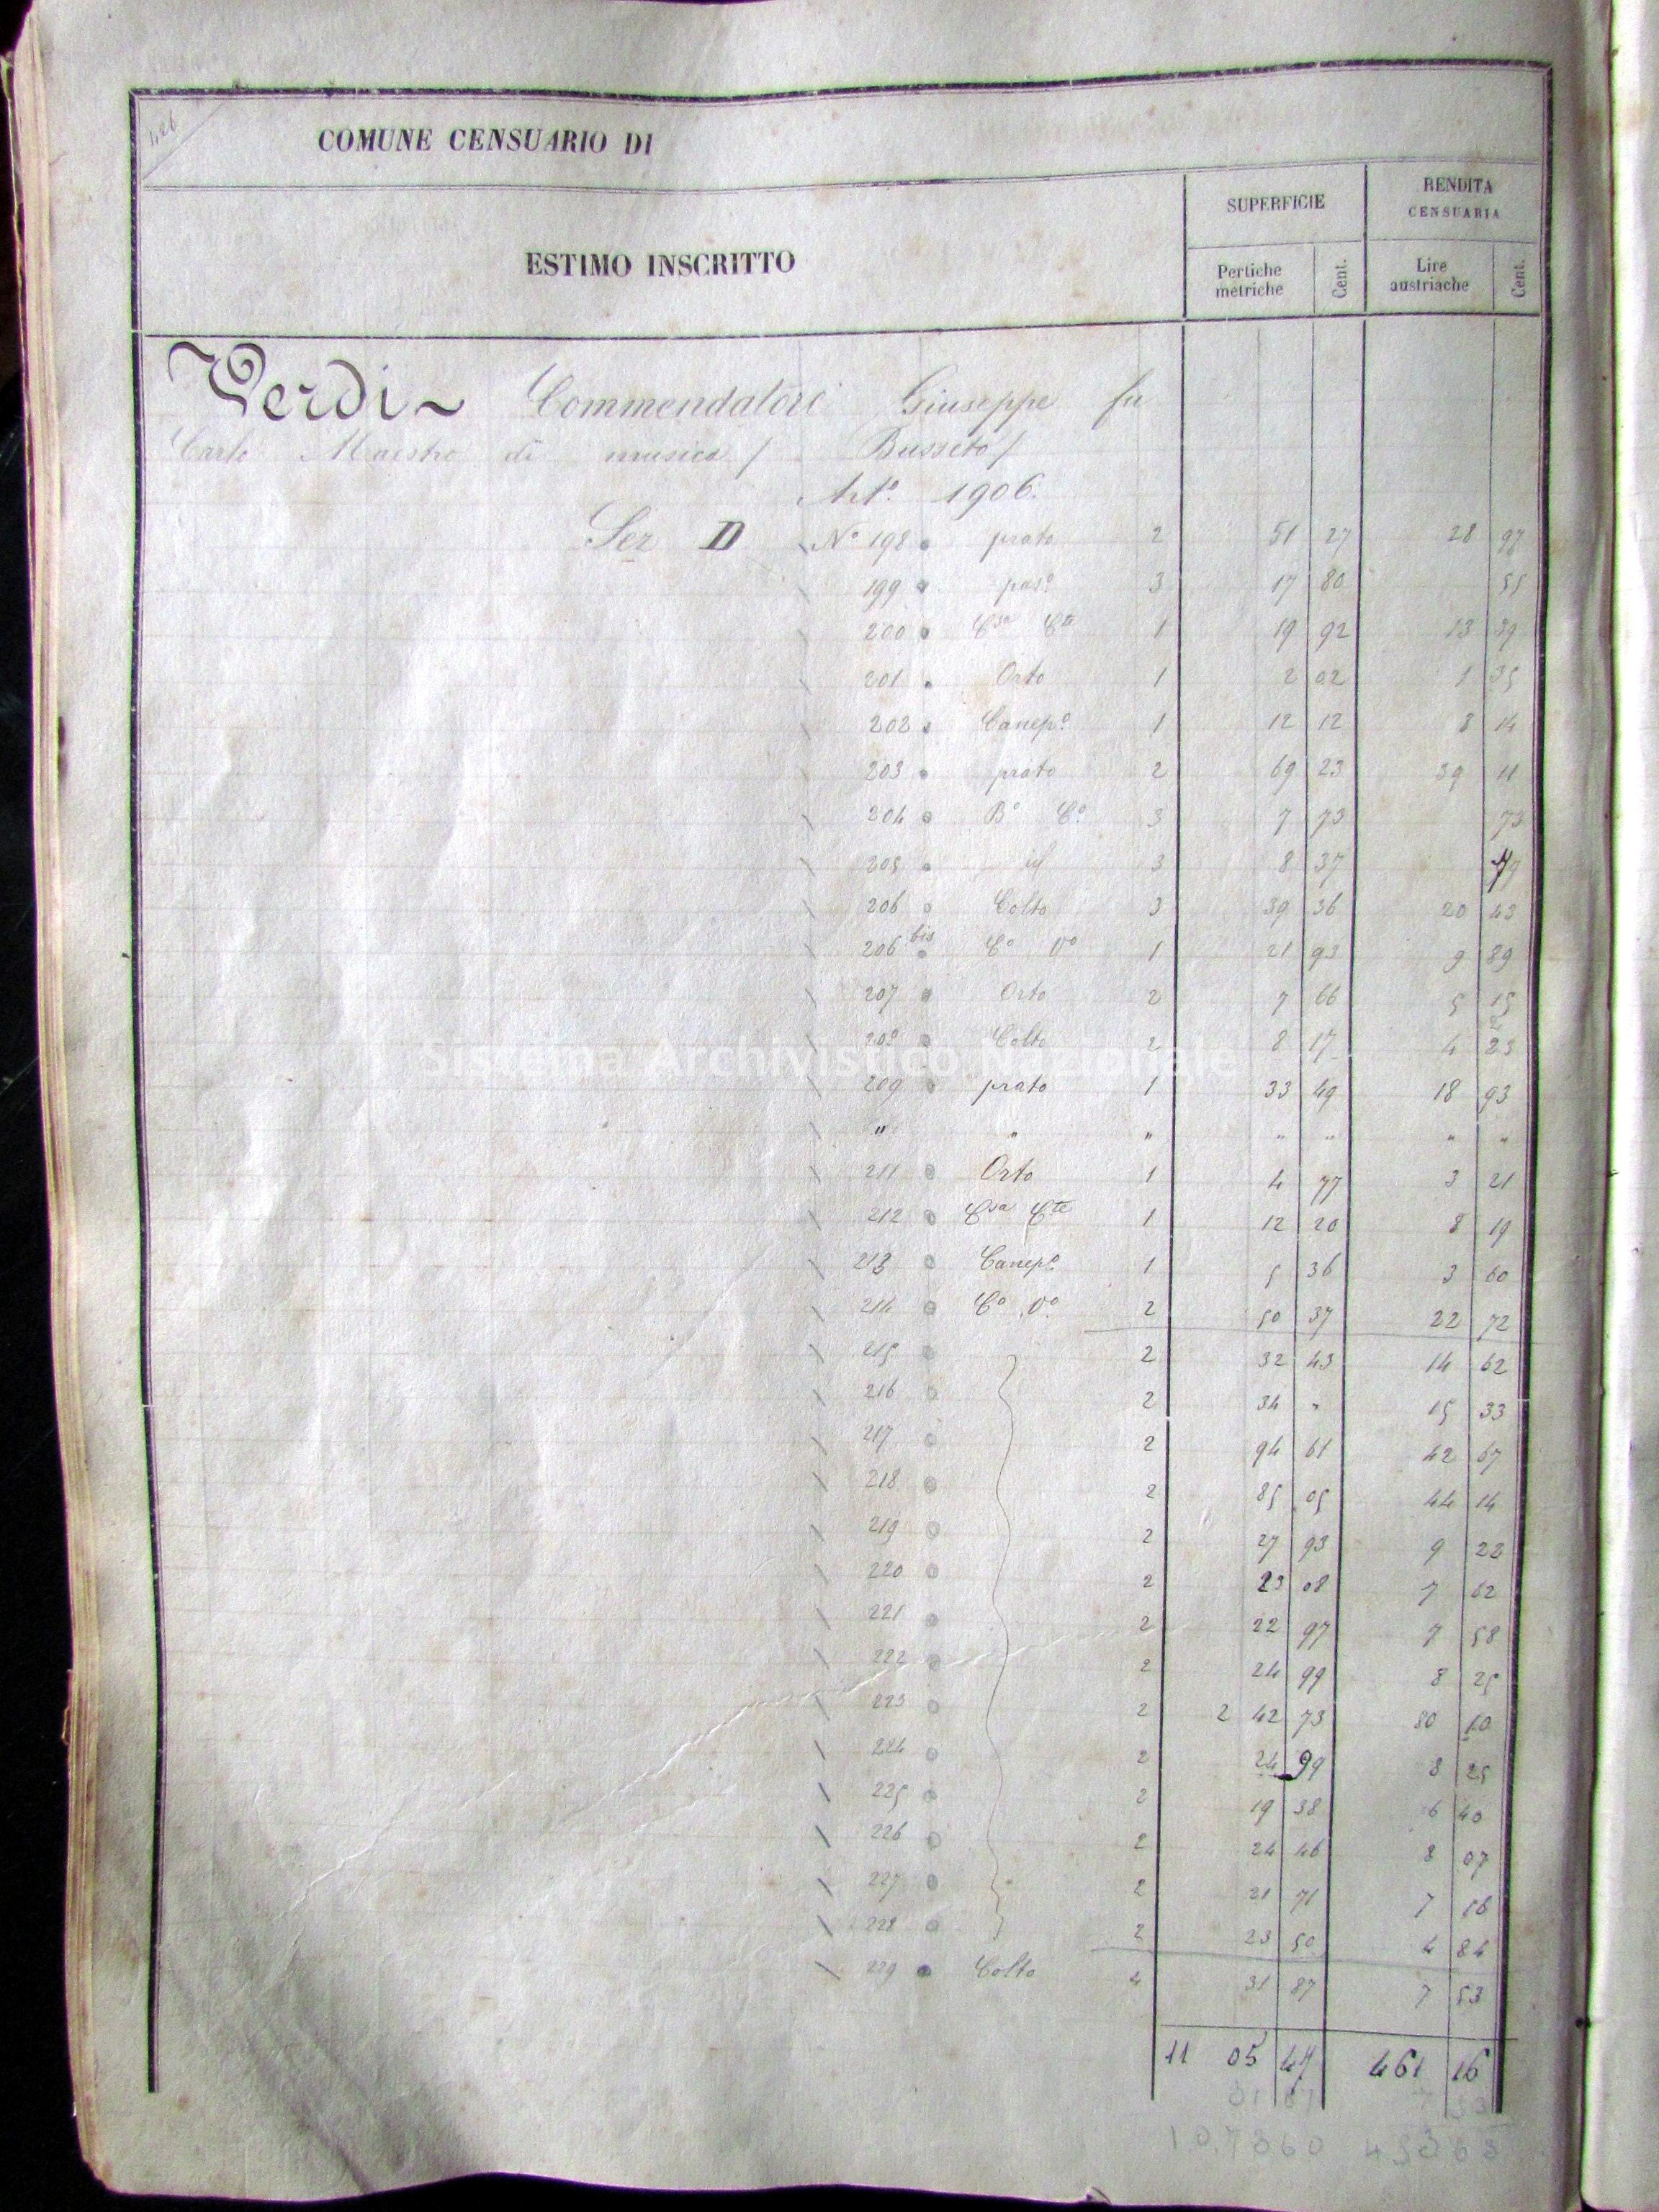 426
COMUNE CENSUARIO DI
ESTIMO INSCRITTO
SUPERFICIE
RENDITA CENSUARIA
Pertiche metriche
Cent.
Lire austriache
Cent.
Verdi Commendatore Giuseppe fu
Carlo Maestro di musica / Busseto /
Art.º 1906.
Sez D Nº 198 prato 2 51 27 28 97
199 pasº 3 17 80 55
200 Csa Cte 1 19 92 13 39
201 Orto 1 2 02 1 35
202 Canepº 1 12 12 8 14
203 prato 2 69 23 39 11
204 Bº Cº 3 7 73 73
205 id 3 8 37
206 Colto 3 39 36 20 43
206 bis Cº Vº 1 21 93 9 89
207 Orto 2 7 66 5 15
208 Colto 2 8 17 4 23
Sistema Archivistico Nazionale
209 prato 1 33 49 18 93
" " " " " " "
211 Orto 1 4 77 3 21
212 Csa Cte 1 12 20 8 19
213 Canepº 1 5 36 3 60
214 Cº Vº 2 50 37 22 72
215 2 32 43 14 62
216 2 34 " 15 33
217 2 94 61 42 67
218 2 85 05 44 14
219 2 27 93 9 22
220 2 23 08 7 62
221 2 22 97 7 58
222 2 24 99 8 25
223 2 2 42 73 80 10
224 2 24 99 8 25
225 2 19 38 6 40
226 2 24 46 8 07
227 2 21 71 7 16
228 2 23 50 4 84
229 Colto 4 31 87 7 53
11 05 47 461 16
31 87 7 53
10.7360 45363